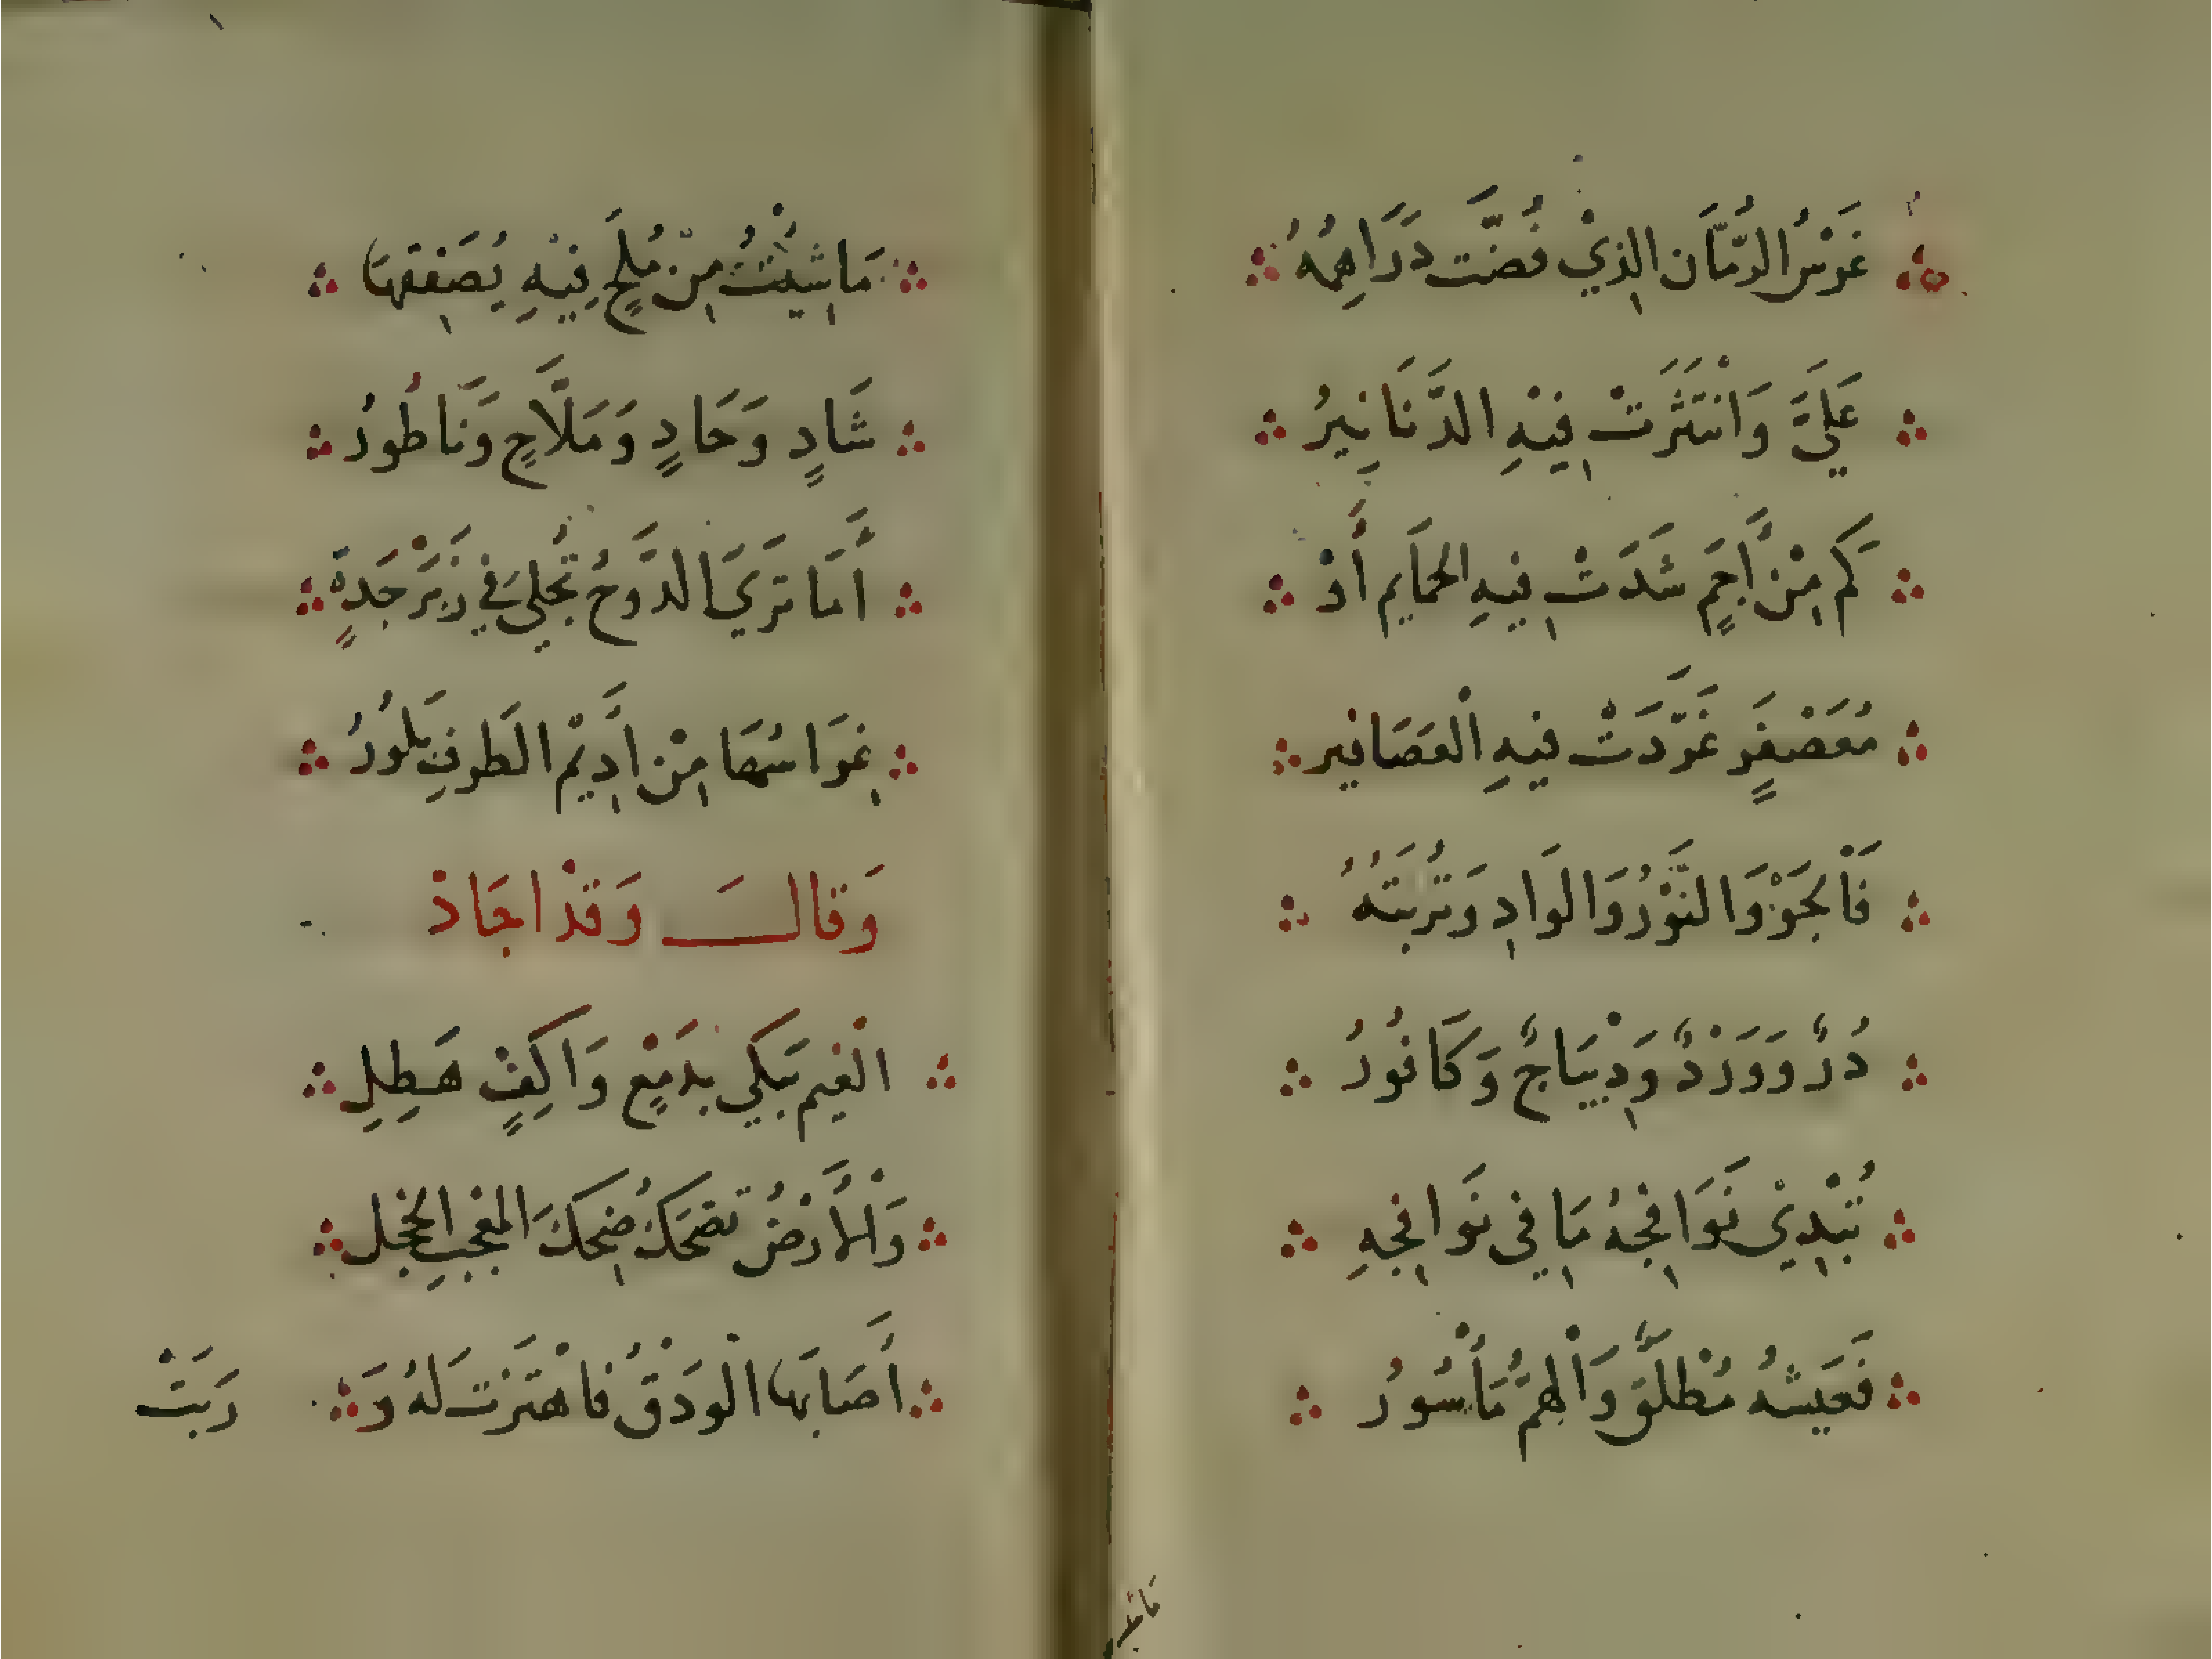 غَرْسُ الرُّمَّان الذِيْ فُضَّت دَرَاهِمُهُ
عَلَيَّ وَانْتَثَرَتْ فِيْهِ الدَّنَانِيرُ
كَم مِنْ أَجَمٍ شَدَتْ فِيهِ الحَمَايم أَوْ
مُعَصْفَرٍ غَرَّدَتْ فِيهِ الْعَصَافير
فَالجَوْ وَالنَّوْرُ وَالوَادِ وَتُرْبَتُهُ
دُرٌّ وَوَرْدٌ وَدِيْبَاجٌ وَكَافُورُ
تُبْدِيْ نَوَافِجُهُ مَا فِي نَوَافِجِهِ
فَعَيشُهُ مُطْلَقٌ وَالْهَمُّ مَأْسُورُ
مَا شِيْتُ مِنْ مُلَحٍ فِيْهِ يُصَفِقهَا
شَادٍ وَحَادٍ وَمَلَّاحٍ وَنَاطُورُ
أَمَا تَرَيَ الدَّوحُ تُجْلَي فِي زَبَرْجَدَةٍ
غِرَاسُهَا مِنْ أَدِيْمِ الطَرفِ بَلورُ
وَقَالَ وَقَدْ اجَادْ
الْغيم يَبكي بِدَمْعٍ وَاكِفٍ هَطِلِ
وَالْأَرْضُ تَضحَكُ ضِحكَ المُعْجَبِ الخَجِل
أَصَابَهَا الْوَدْقُ فَاهْتَزَت لَهُ وَ
رَبَتْ